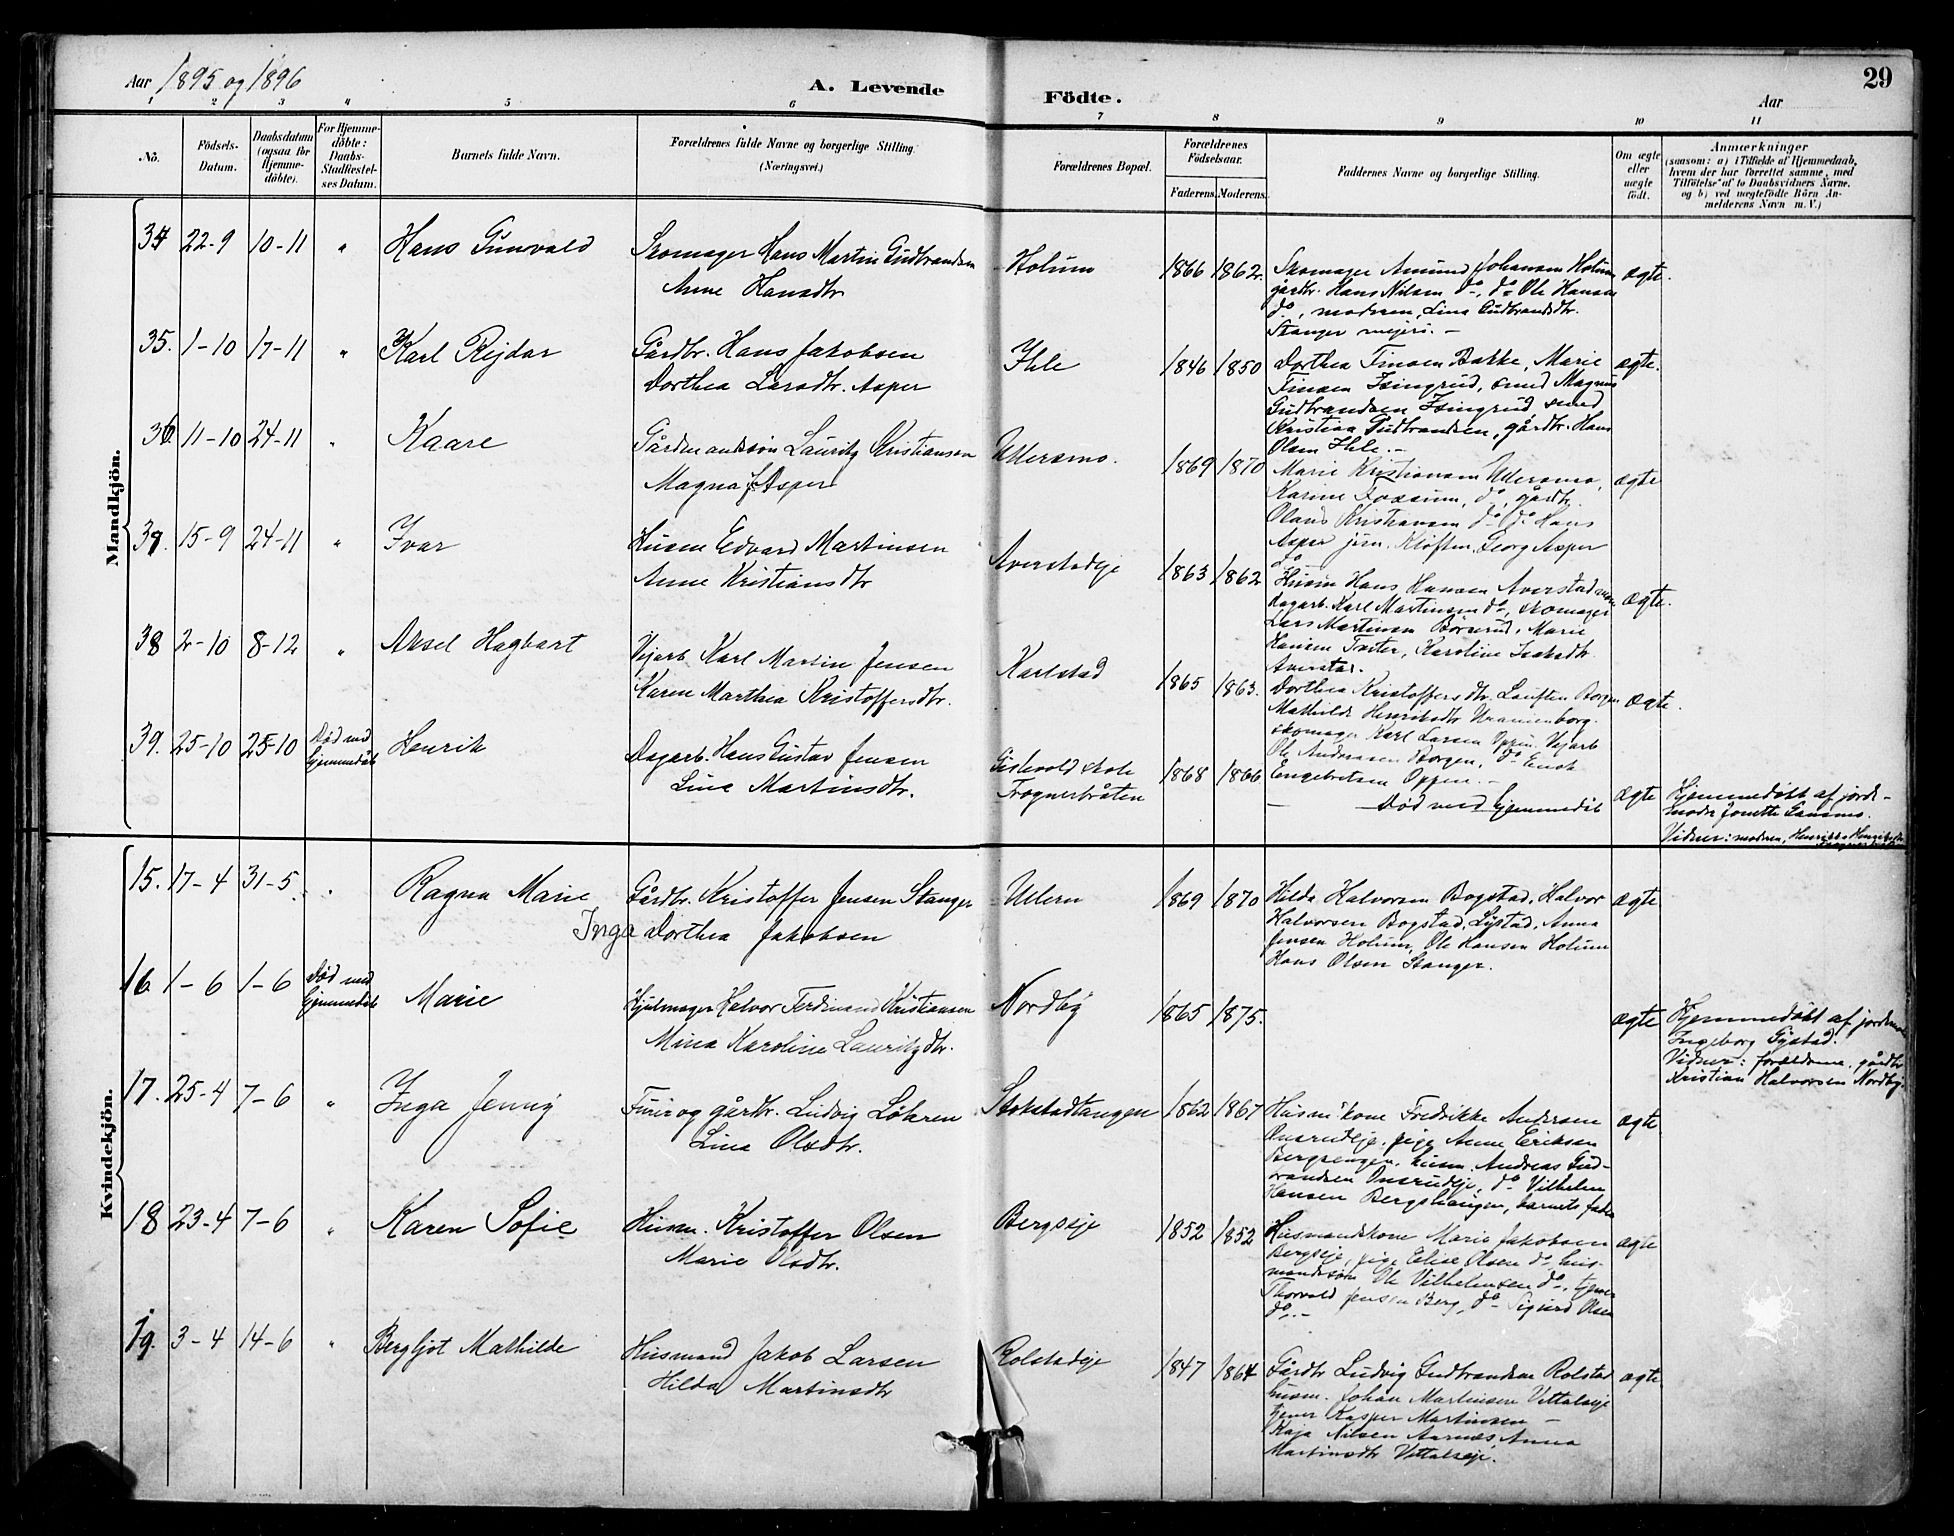 Aar 1895 og 1896
A. Levende Födte.
Aar
29
1 2 3 4 5 6 7 8 9 10 11
No.
Födsels-Datum.
Daabsdatum (ogsaa for Hjemme-döbte).
For Hjemme-döbte: Daabs-Stadfæstel-ses Datum.
Barnets fulde Navn.
Forældrenes fulde Navne og borgerlige Stilling (Næringsvei.)
Forældrenes Bopæl.
Forældrenes Födselsaar.
Faderens. Moderens.
Faddernes Navne og borgerlige Stilling.
Om ægte eller uægte födt.
Anmærkninger
(saasom: a) i Tilfælde af Hjemmedaab,
hvem der har forrettet samme, med
Tilföielse af to Daabsvidners Navne,
og b) ved uægtefödte Börn An-
melderens Navn m. V.)
Mandkjön.
34 22-9 10-11 " Hans Gunvald
Skomager Hans Martin Gudbrandsen
Anne Hansdtr
Holum 1866 1862
Skomager Amund Johansen Holum
gårdbr. Hans Nilsen do, do Ole Hansen
do, modren, Lina Gudbrandsdtr.
Stanger mejeri. -
ægte.
35. 1-10 17-11 " Karl Rejdar
Gårdbr. Hans Jakobsen
Dorthea Larsdtr. Asper
Ihle 1846 1850
Dorthea Finsen Bakke, Marie
Finsen Isingrud, smed Magnus
Gudbrandsen Isingrud smed
Kristian Gudbrandsen, gårdbr. Hans
Olsen Ihle. -
ægte.
36 11-10 24-11 " Kaare
Gårdmandssøn Lauritz Kristiansen
Magna J. Asper
Ullersmo. 1869 1870
Marie Kristiansen Ullersmo,
Karine Fossum, do, gårdbr.
Olaus Kristiansen do, do Hans
Asper jun. Kløften, Georg Asper
do
ægte
37. 15-9 24-11 " Ivar
Husm Edvard Martinsen
Anne Kristiansdtr
Averstadeje 1863 1862
Husm Hans Hansen Averstad
Dagarb. Karl Martinsen do, skomager
Lars Martinsen Børserud, Marie
Hansen Tveter, Karoline Isaksdtr
Averstad.
ægte.
38 2-10 8-12 " Aksel Hagbart
Vejarb. Karl Martin Jensen
Karen Marthea Kristoffersdtr.
Karlstad 1865 1863.
Dorthea Kristoffersdtr. Borgen
Mathilde Henriksdtr Uranienborg.
skomager Karl Larsen Oppen, Vejarb
Ole Andreassen Borgen, do
Engebretsen Oppen. -
ægte.
39. 25-10 25-10 Død med hjemmedåb Henrik
Dagarb. Hans Gustav Jensen
Lina Martinsdtr.
Gislevold skole
Trognerbråten
1868 1866
- Død med hjemmedåb
ægte
Hjemmedøbt af jorde-
moder Jonette
Vidner: modren,
Kvindekjön.
15. 17-4 31-5. " Ragna Marie
Gårdbr. Kristoffer Jensen Stanger
Inga Dorthea Jakobsen
Ullern 1869 1870
Hilda Halvorsen Bogstad, Halvor
Halvorsen Bogstad, Lystad, Anna
Jensen Holum, Ole Hansen Holum
Hans Olsen Stanger.
ægte
16 1-6 1-6 Død med hjemmedåb Marie
Hjulmager Halvor Ferdinand Kristiansen
Mina Karoline Lauritzdtr.
Nordby 1865 1875.
ægte
Hjemmedøbt af jordemor
Ingeborg Gystad.
Vidner: forældrene, gårdbr
Kristian Halvorsen Nordby.
17. 25-4 7-6 " Inga Jenny
Furir og gårdbr. Ludvig Løkaren
Lina Olsdtr.
Stokstadtangen 1862 1867
Husm kone Fredrikke Andersen
Onsrudeje, pige Anne Eriksen
Bergsengen, husm. Andreas Gud-
brandsen Onsrudeje, do Vilhelm
Hansen Bergshaugen, barnets fader
ægte
18 23-4 7-6 " Karen Sofie
Husm. Kristoffer Olsen
Marie Olsdtr.
Bergseje 1852 1852
Husmandskone Marie Jakobsen
Bergseje, pige Elise Olsen do, hus-
mandssøn Ole Vilhelmsen do, tjener
Thorvald Jensen Berg, do Sigurd Olsen
do. -
ægte
19. 3-4 14-6 " Bergljot Mathilde
Husmand Jakob Larsen
Hilda Martinsdtr
Rolstadeje 1847 1864
Gårdbr Ludvig Gudbrandsen Rolstad
husm. Johan Martinsen Vittalseje
tjener Kasper Martinsen -
Kaja Nilsen Aarnæs Anna
Martinsdtr Vittalseje.
ægte